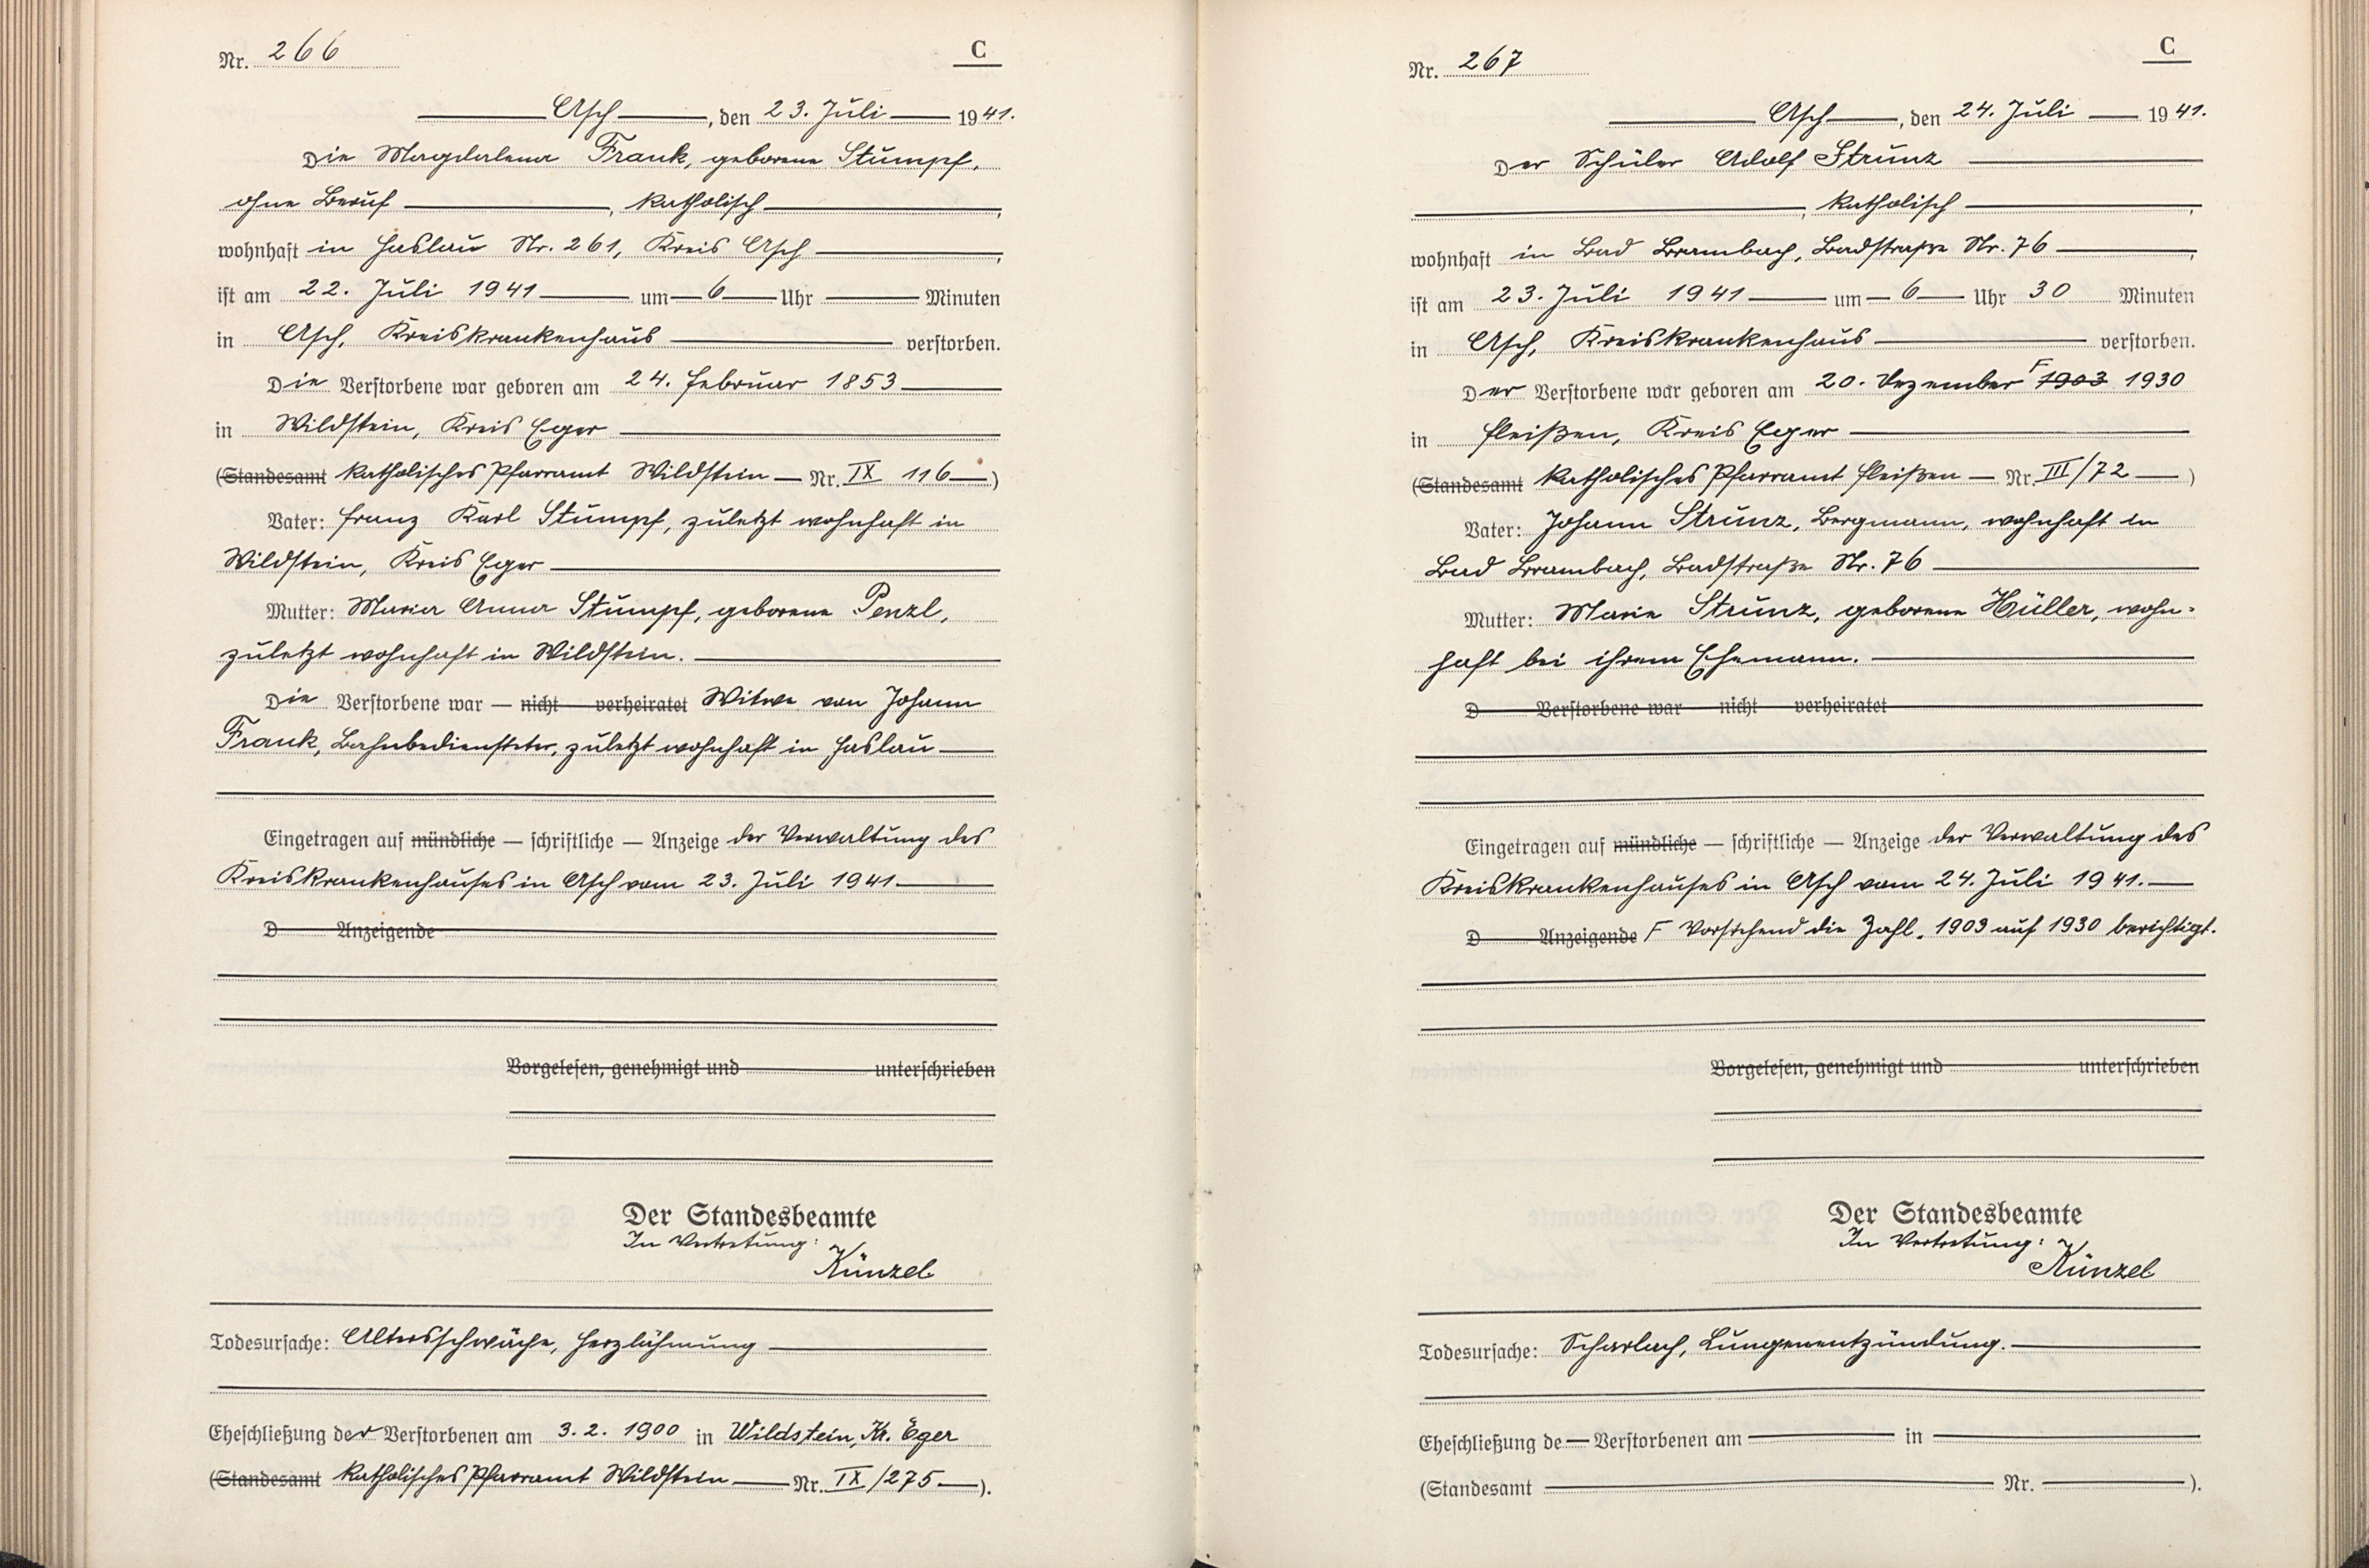 Nr. 266
C
Asch, den 23. Juli 1941.
Die Magdalena Frank, geborene Stumpf,
ohne Beruf, katholisch,
wohnhaft in Haslau Nr. 261, Kreis Asch,
ist am 22. Juli 1941 um 6 Uhr Minuten
in Asch, Kreiskrankenhaus verstorben.
Die Verstorbene war geboren am 24. Februar 1853
in Wildstein, Kreis Eger
(Standesamt katholisches Pfarramt Wildstein — Nr. IX 116 —)
Vater: Franz Karl Stumpf, zuletzt wohnhaft in
Wildstein, Kreis Eger
Mutter: Maria Anna Stumpf, geborene Penzl,
zuletzt wohnhaft in Wildstein.
Die Verstorbene war — nicht — verheiratet Witwe von Johann
Frank, Bahnbediensteter, zuletzt wohnhaft in Haslau
Eingetragen auf mündliche — schriftliche — Anzeige der Verwaltung des
Kreiskrankenhauses in Asch vom 23. Juli 1941.
D Anzeigende
Vorgelesen, genehmigt und unterschrieben
Der Standesbeamte
In Vertretung:
Künzel
Todesursache: Altersschwäche, Herzlähmung
Eheschließung der Verstorbenen am 3.2.1900 in Wildstein, Kr. Eger
(Standesamt katholisches Pfarramt Wildstein — Nr. IX/275 —).
Nr. 267
C
Asch, den 24. Juli 1941.
Der Schüler Adolf Strunz
, katholisch,
wohnhaft in Bad Brambach, Badstraße Nr. 76,
ist am 23. Juli 1941 um 6 Uhr 30 Minuten
in Asch, Kreiskrankenhaus verstorben.
Der Verstorbene war geboren am 20. Dezember F 1903 1930
in Fleißen, Kreis Eger
(Standesamt katholisches Pfarramt Fleißen — Nr. III/72 —)
Vater: Johann Strunz, Bergmann, wohnhaft in
Bad Brambach, Badstraße Nr. 76
Mutter: Marie Strunz, geborene Hüller, wohn-
haft bei ihrem Ehemann.
D Verstorbene war — nicht — verheiratet
Eingetragen auf mündliche — schriftliche — Anzeige der Verwaltung des
Kreiskrankenhauses in Asch vom 24. Juli 1941.
D Anzeigende F Vorstehend die Zahl 1903 auf 1930 berichtigt.
Vorgelesen, genehmigt und unterschrieben
Der Standesbeamte
In Vertretung:
Künzel
Todesursache: Scharlach, Lungenentzündung.
Eheschließung de— Verstorbenen am — in —
(Standesamt — Nr. —).